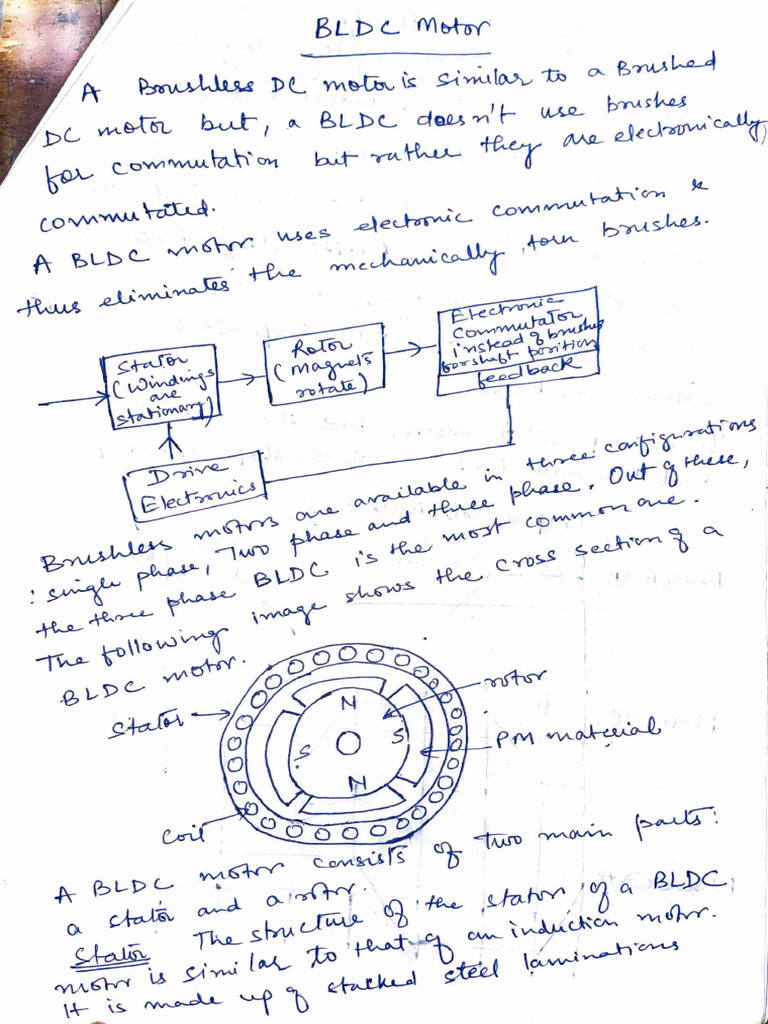 BLDC Motor
A Brushless DC motor is similar to a Brushed
DC motor but, a BLDC doesn't use brushes
for commutation but rather they are electronically
commutated.
A BLDC motor uses electronic commutation &
thus eliminates the mechanically torn brushes.
Stator
(Windings
are
stationary)
Rotor
(Magnets
rotate)
Electronic
commutator
instead of brushes
for shaft position
feedback
Drive
Electronics
Brushless motors are available in three configurations
: single phase, Two phase and three phase. Out of these,
the three phase BLDC is the most common one.
The following image shows the cross section of a
BLDC motor.
Stator
rotor
N
S
S
N
PM material
Coil
A BLDC motor consists of two main parts:
a stator and a rotor.
Stator The structure of the stator of a BLDC
motor is similar to that of an induction motor.
It is made up of stacked steel laminations